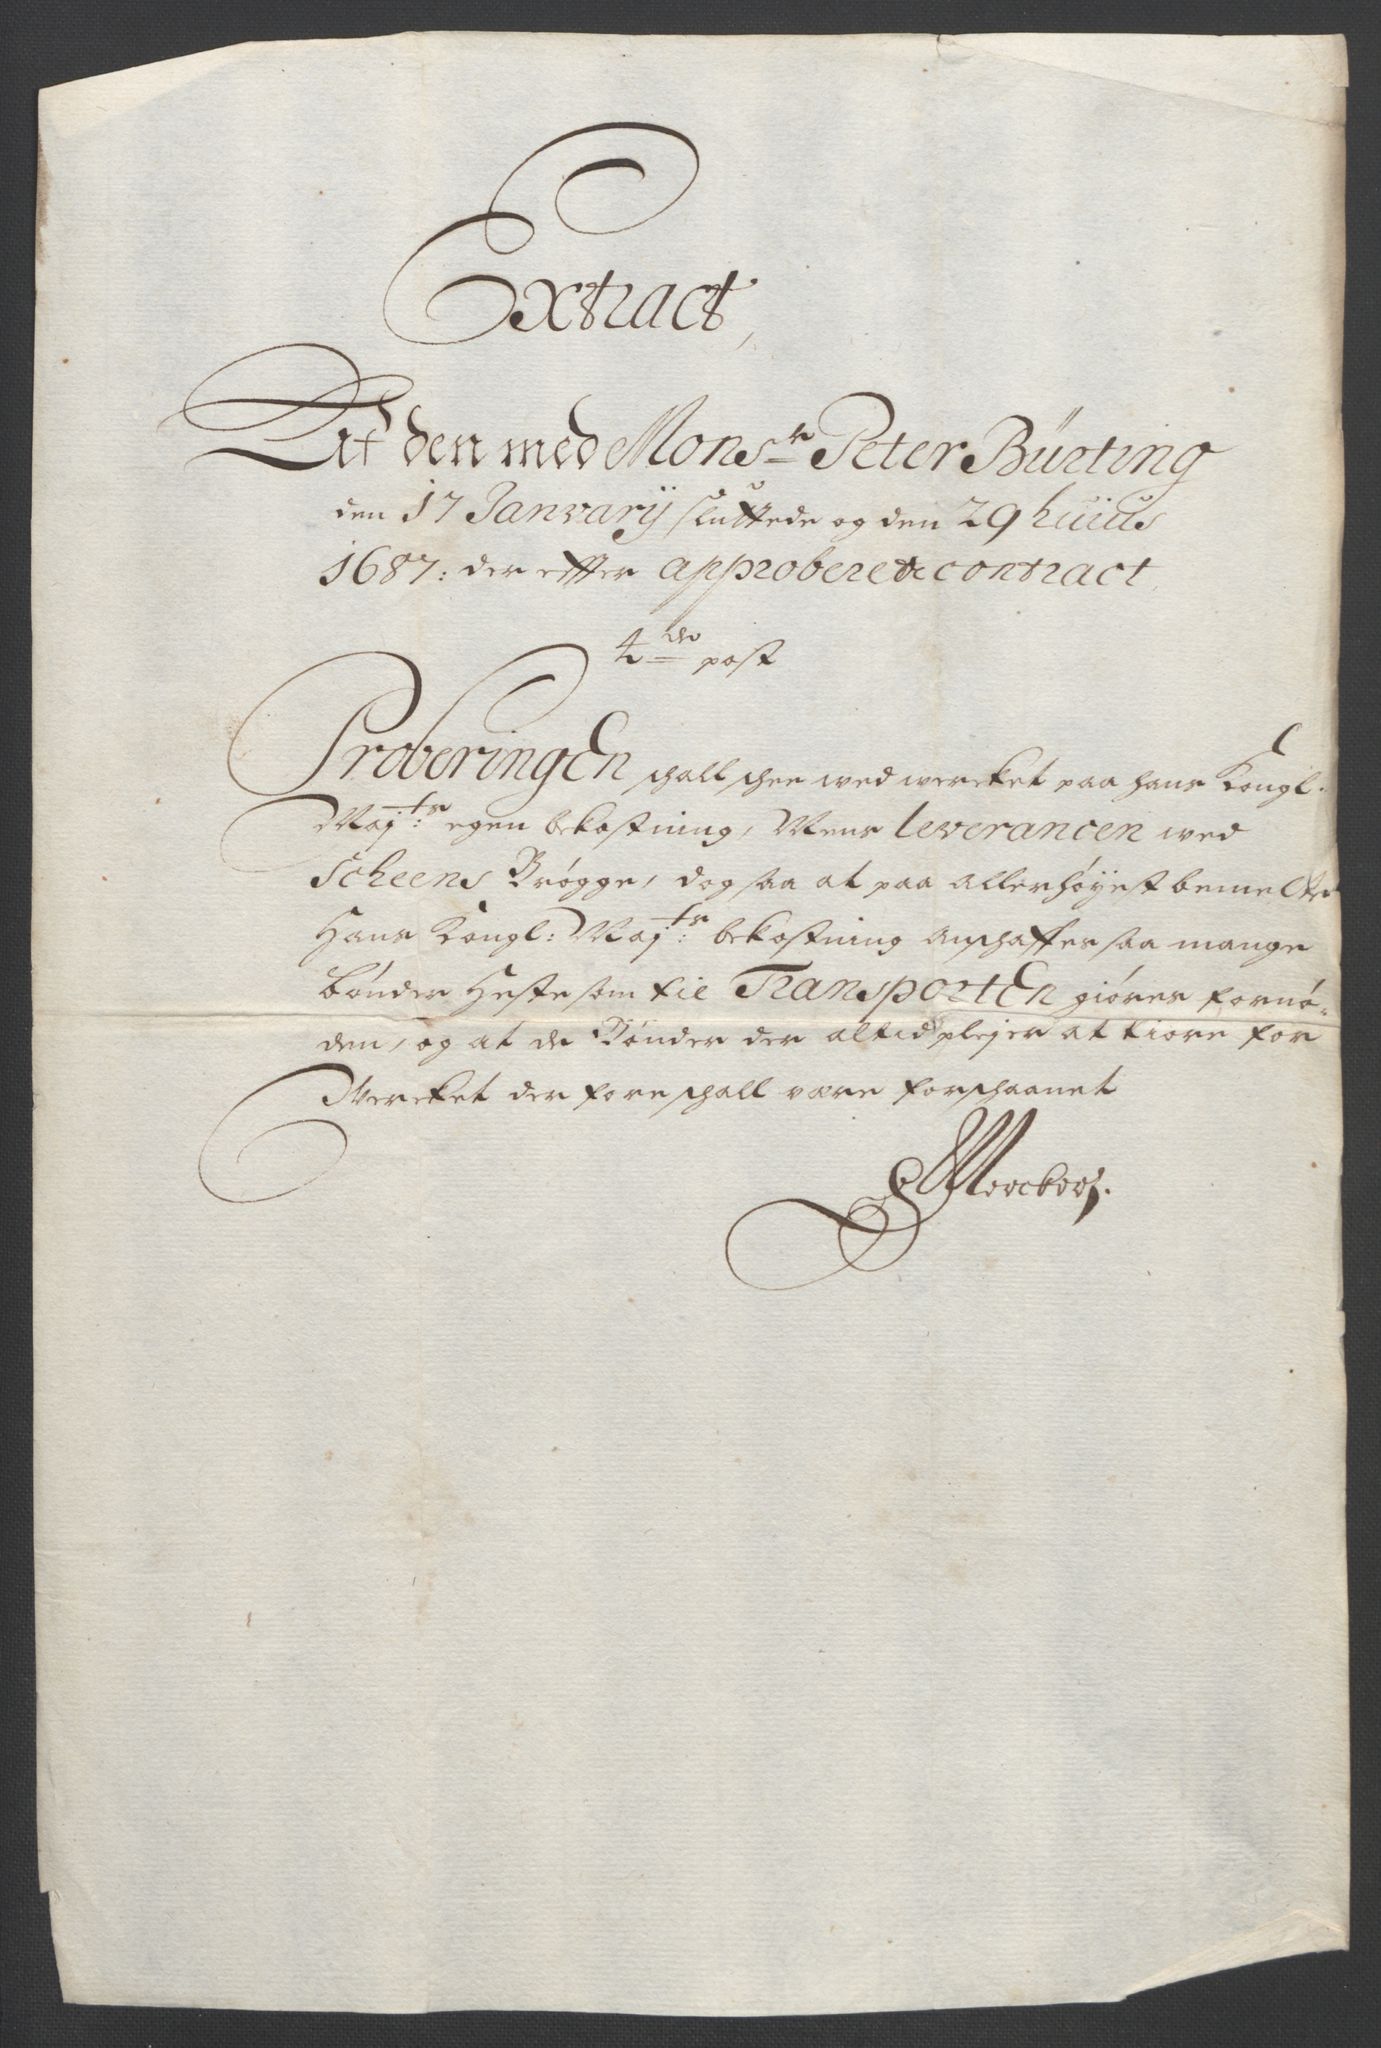 Extract,
Af den med Monsr Peter Bürting
den 17 Janvarij sluttede og den 29 huius
1687: der effter approberede contract
4de post
Proberingen schall schee wed wercket paa hans Kongl.
Maj:ts egen bekostning, Mens leverancen wed
Scheens Brøgge, dog saa at paa allerhøyest bemelte
Hans Kongl: Maj:ts bekostning anschaffes saa mange
bønder Heste som til Transporten giøres fornø-
den, og at de Bønder der altid plejer at kiøre for
Wercket der fore schall være forschaanet